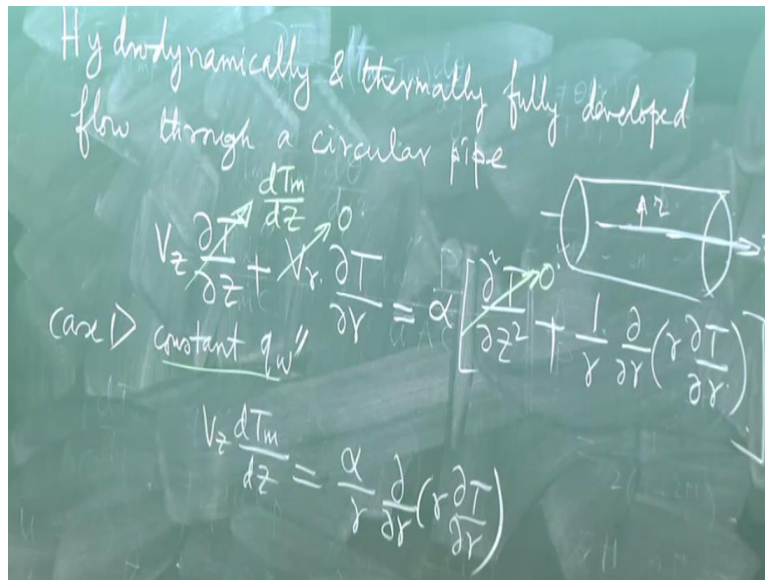 Hydrodynamically & thermally fully developed
flow through a circular pipe
V_z ∂T/∂z → dT_m/dz + V_r → 0 ∂T/∂r = α [∂²T/∂z² → 0 + 1/r ∂/∂r (r ∂T/∂r)]
r
Case 1> constant q_w"
V_z dT_m/dz = α/r ∂/∂r (r ∂T/∂r)